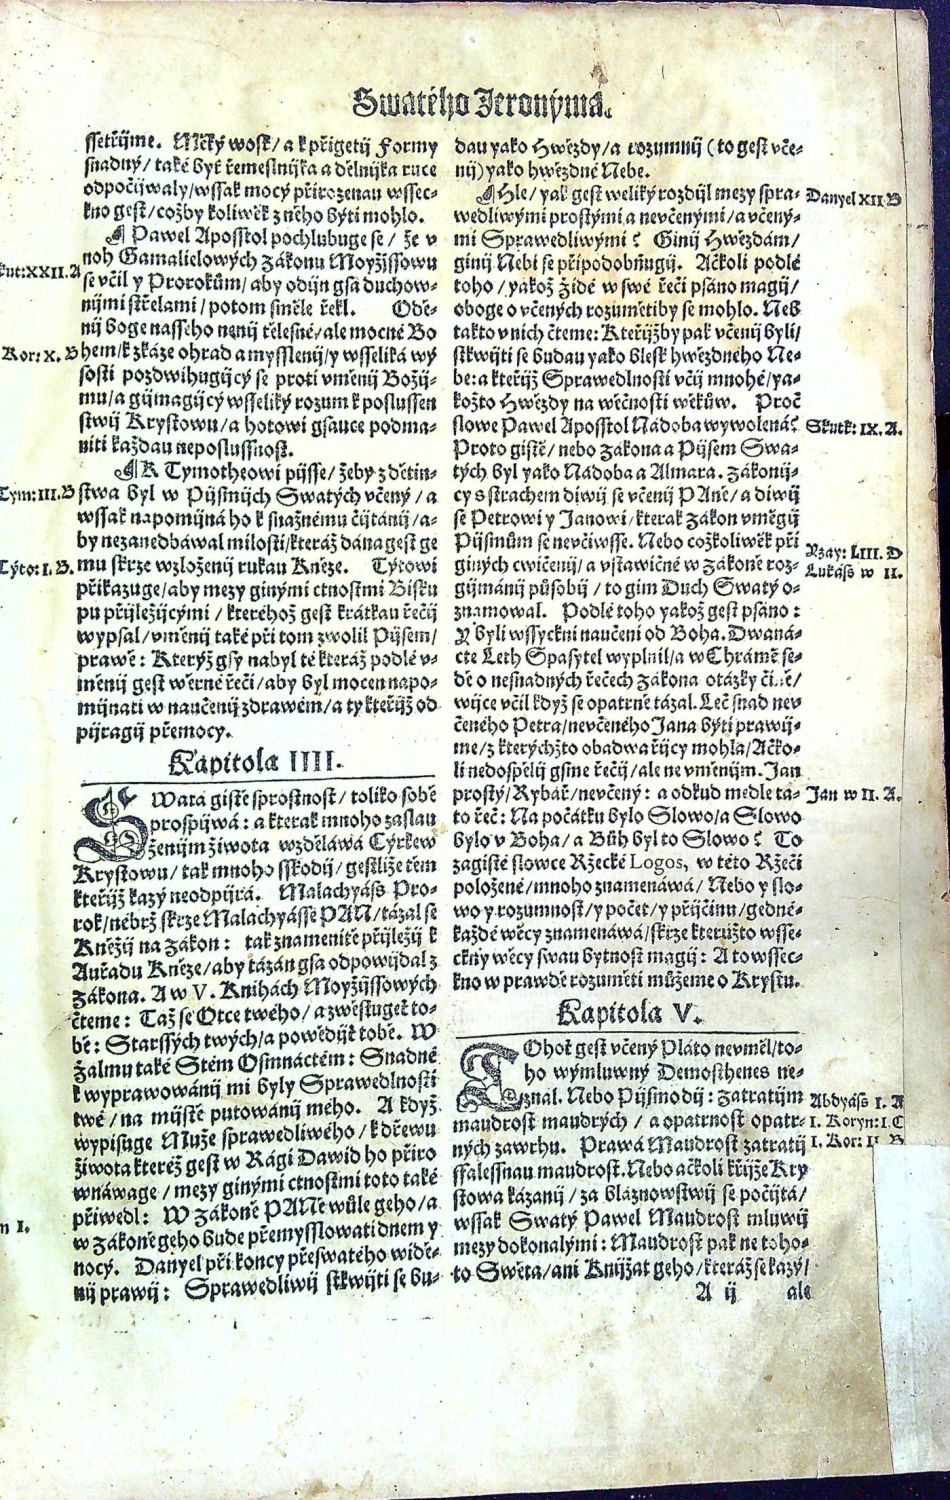 Swatého Jeronýma.
ssetřijme. Měký wosk/a k přigetij Formy
snadný/ také byť řemeslnijka a dělnijka ruce
odpočijwaly/wssak mocý přirozenau wssec-
kno gest/cožby koliwěk z něho býti mohlo.
¶ Pawel Aposstol pochlubuge se/ že v
noh Gamalielowých Zákonu Moyžijssowu
Skut:XXII.A
se včil y Prorokům/aby odijn gsa duchow-
nijmi střelami/ potom smĕle řekl. Oděe-
nij boge nasseho nenij tělesné/ale mocné Bo
Kor: X. B
hem/k zkáze ohrad a mysslenij/y wsselikä wý
sosti pozdwihugijcý se proti vměnij Božij-
mu/a gijmagijcý wsseliký rozum k poslussen
stwij Krystowu/a hotowi gsauce podma-
niti každau neposlussnost.
¶ K Tymotheowi pijsse/žeby z dětin-
Tym:III.B
stwa byl w Pijsmijch Swatých včený/a
wssak napomijná ho k snažnému čijtánij/a-
by nezanedbáwal milosti/kteráž dána gest ge
mu skrze wzloženij rukau Kněze. Tytowi
Tyto:I.B.
přikazuge/aby mezy ginými ctnostmi Bisku
pu přijležijcými/ kteréhož gest krátkau řečij
wypsal/vměnij také při tom zwolil Pijsem/
prawě: Kterýž gsy nabyl té kteráž podlé v-
měnij gest wěrné řeči/aby byl mocen napo-
mijnati w naučenij zdrawém/a ty kteřijž od
pijragij přemocy.
Kapitola IIII.
SWatá gistě sprostnost/toliko sobě
prospijwá: a kterak mnoho zaslau
ženijm žiwota wzděláwá Cýrkew
Krystowu/tak mnoho sskodij/gestliže těm
kteřijž kazý neodpijrá. Malachyáss Pro-
rok/nébrž skrze Malachyásse PAN/tázal se
Kněžij na Zákon: tak znamenitě přijležij k
Auřadu Kněze/aby tázán gsa odpowijdal z
Zákona. A w V. Knihách Moyžijssowých
čteme: Taž se Otce twého/a zwěstugeť to-
bě: Starssých twých/a powědijť tobě. W
Žalmu také Stém Osmnáctém: Snadné
k wyprawowánij mi byly Sprawedlnosti
twé/na mijstě putowánij mého. A když
wypisuge Muže sprawedliwého/k dřewu
žiwota kteréž gest w Rági Dawid ho přiro
wnáwage/mezy ginými ctnostmi toto také
přiwedl: W Zákoně PANě wůle geho/a
w Zákoně geho bude přemysslowati dnem y
nocý. Danyel při koncy přeswatého widě-
nij prawij: Sprawedliwij stkwijti se bu-
m I.
dau yako Hwězdy/a rozumnij (to gest vče-
nij) yako hwězdné Nebe.
¶ Hle/yak gest weliký rozdijl mezy spra-
Danyel XII.B
wedliwými prostými a nevčenými/a včený-
mi Sprawedliwými? Ginij Hwězdám/
ginij Nebi se připodobňugij. Ačkoli podlé
toho/yakož Židé w swé řeči psáno magij/
oboge o včených rozumětiby se mohlo. Neb
takto v nich čteme: Kteřijžby pak včenij byli/
stkwijti se budau yako blesk hwězdného Ne-
be: a kteřijž Sprawedlnosti včij mnohé/ya-
kožto Hwězdy na wěčnosti wěkůw. Proč
slowe Pawel Aposstol Nádoba wywolená?
Skutk: IX. A.
Proto gistě/nebo Zákona a Pijsem Swa-
tých byl yako Nádoba a Almara. Zákonij-
cy s strachem diwij se včenij PAně/a diwij
se Petrowi y Janowi/kterak Zákon vmĕgij
Pijsmům se nevčiwsse. Nebo cožkoliwěk při
Yzay: LIII. D
giných cwičenij/a vstawičné w Zákoně roz-
Lukáss w II.
gijmánij působij/to gim Duch Swatý o-
znamowal. Podlé toho yakož gest psáno:
Y byli wssyckni naučeni od Boha. Dwaná-
cte Leth Spasytel wyplnil/a w Chrámě se-
dě o nesnadných řečech Zákona otázky čině/
wijce včil když se opatrně tázal. Leč snad nev
čeného Petra/nevčeného Jana býti prawij-
me/z kterýchžto obadwa řijcy mohla/Ačko-
li nedospělij gsme řečij/ale ne vměnijm. Jan
prostý/Rybář/nevčený: a odkud medle ta-
Jan w II. A.
to řeč: Na počátku bylo Slowo/a Slowo
bylo v Boha/a Bůh byl to Slowo? To
zagisté slowce Ržecké Logos, w této Ržeči
položené/mnoho znamenáwá/Nebo y slo-
wo y rozumnost/y počet/y přijčinu/gedné-
každé wěcy znamenáwá/skrze kterúžto wsse-
ckny wěcy swau bytnost magij: A to wssec-
kno w prawdě rozuměti můžeme o Krystu.
Kapitola V.
TOhoť gest včený Pláto nevměl/to-
ho wýmluwný Demosthenes ne-
znal. Nebo Pijsmo dij: Zatratijm
Abdyáss I. A
maudrost maudrých/a opatrnost opatr-
I. Koryn: I. C
ných zawrhu. Prawá Maudrost zatratij
I. Kor: II. B
ffalessnau maudrost. Nebo ačkoli křijže Kry
stowa kázanij/za bláznowstwij se počijtá/
wssak Swatý Pawel Maudrost mluwij
mezy dokonalými: Maudrost pak ne toho-
to Swěta/ani Knijžat geho/kteráž se kazý/
A ij ale